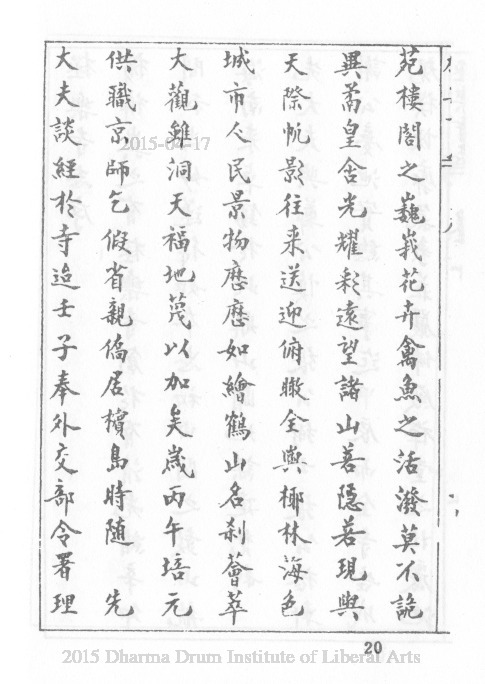 苑樓閣之巍峩花卉禽魚之活潑莫不詭
異蔫皇含光耀彩遠望諸山若隐若現與
天際帆影往来送迎俯瞰全輿椰林海色
城市人民景物歷歷如繪鶴山名刹薈萃
大觀雖洞天福地蔑以加矣歲丙午培元
供職京師乞假省親僑居檳島時随 先
大夫談經於寺迨壬子奉外交部令署理
20
2015-04-17
2015 Dharma Drum Institute of Liberal Arts